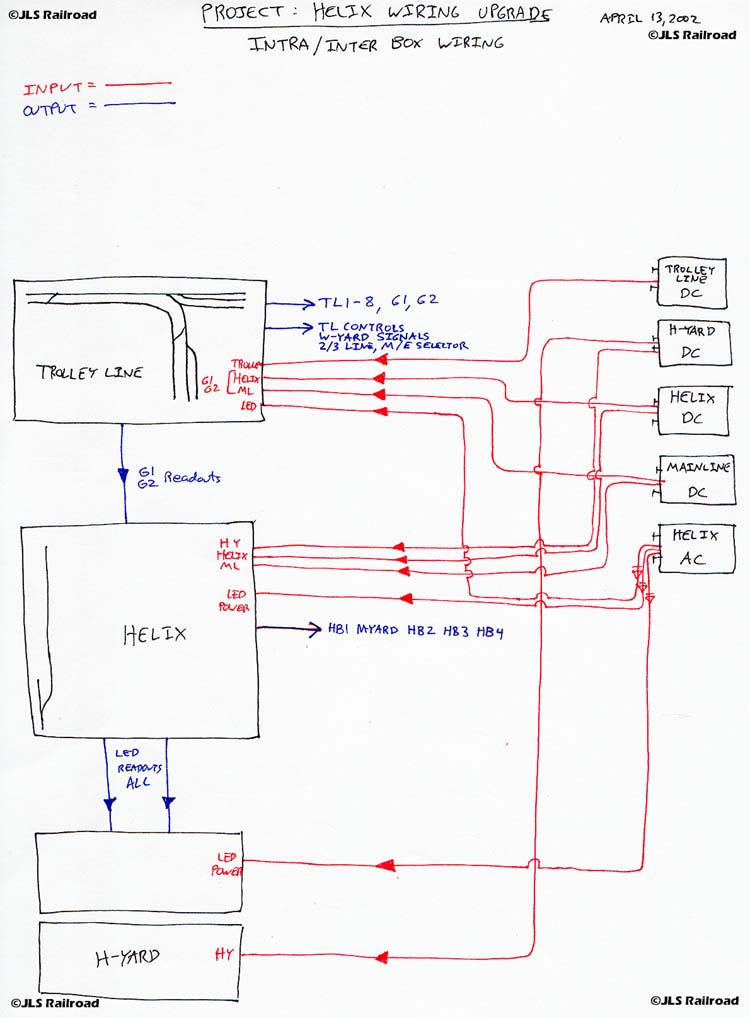 ©JLS Railroad
PROJECT: HELIX WIRING UPGRADE
APRIL 13, 2002
©JLS Railroad
INTRA/INTER BOX WIRING
INPUT =
OUTPUT =
TROLLEY LINE
TL1-8, G1, G2
TL CONTROLS
W-YARD SIGNALS
2/3 LINE, M/E SELECTOR
TROLLE
G1
G2
HELIX
ML
LED
TROLLEY
LINE
DC
H-YARD
DC
HELIX
DC
MAINLINE
DC
HELIX
AC
G1
G2 Readouts
HY
HELIX
ML
LED
POWER
HELIX
HB1 MYARD HB2 HB3 HB4
LED
READOUTS
ALL
LED
POWER
H-YARD
HY
©JLS Railroad
©JLS Railroad